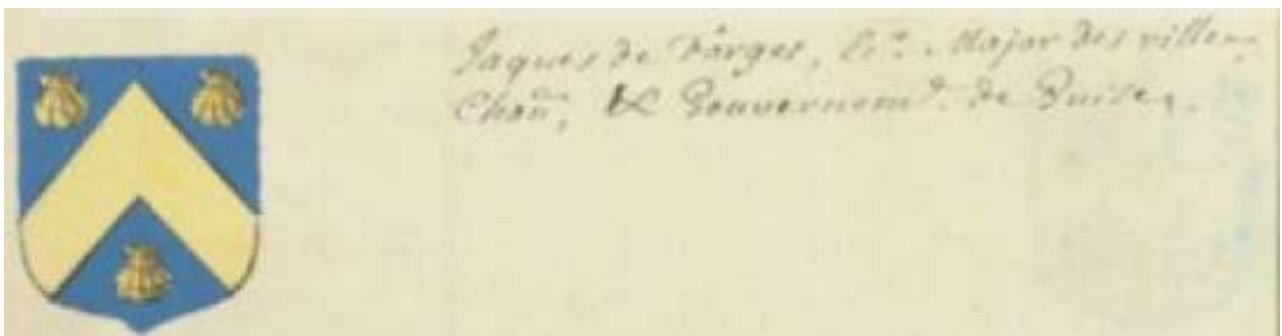 Jaques de Farges, Er. Major des ville
Chau, & Gouvernemt. de Guise.